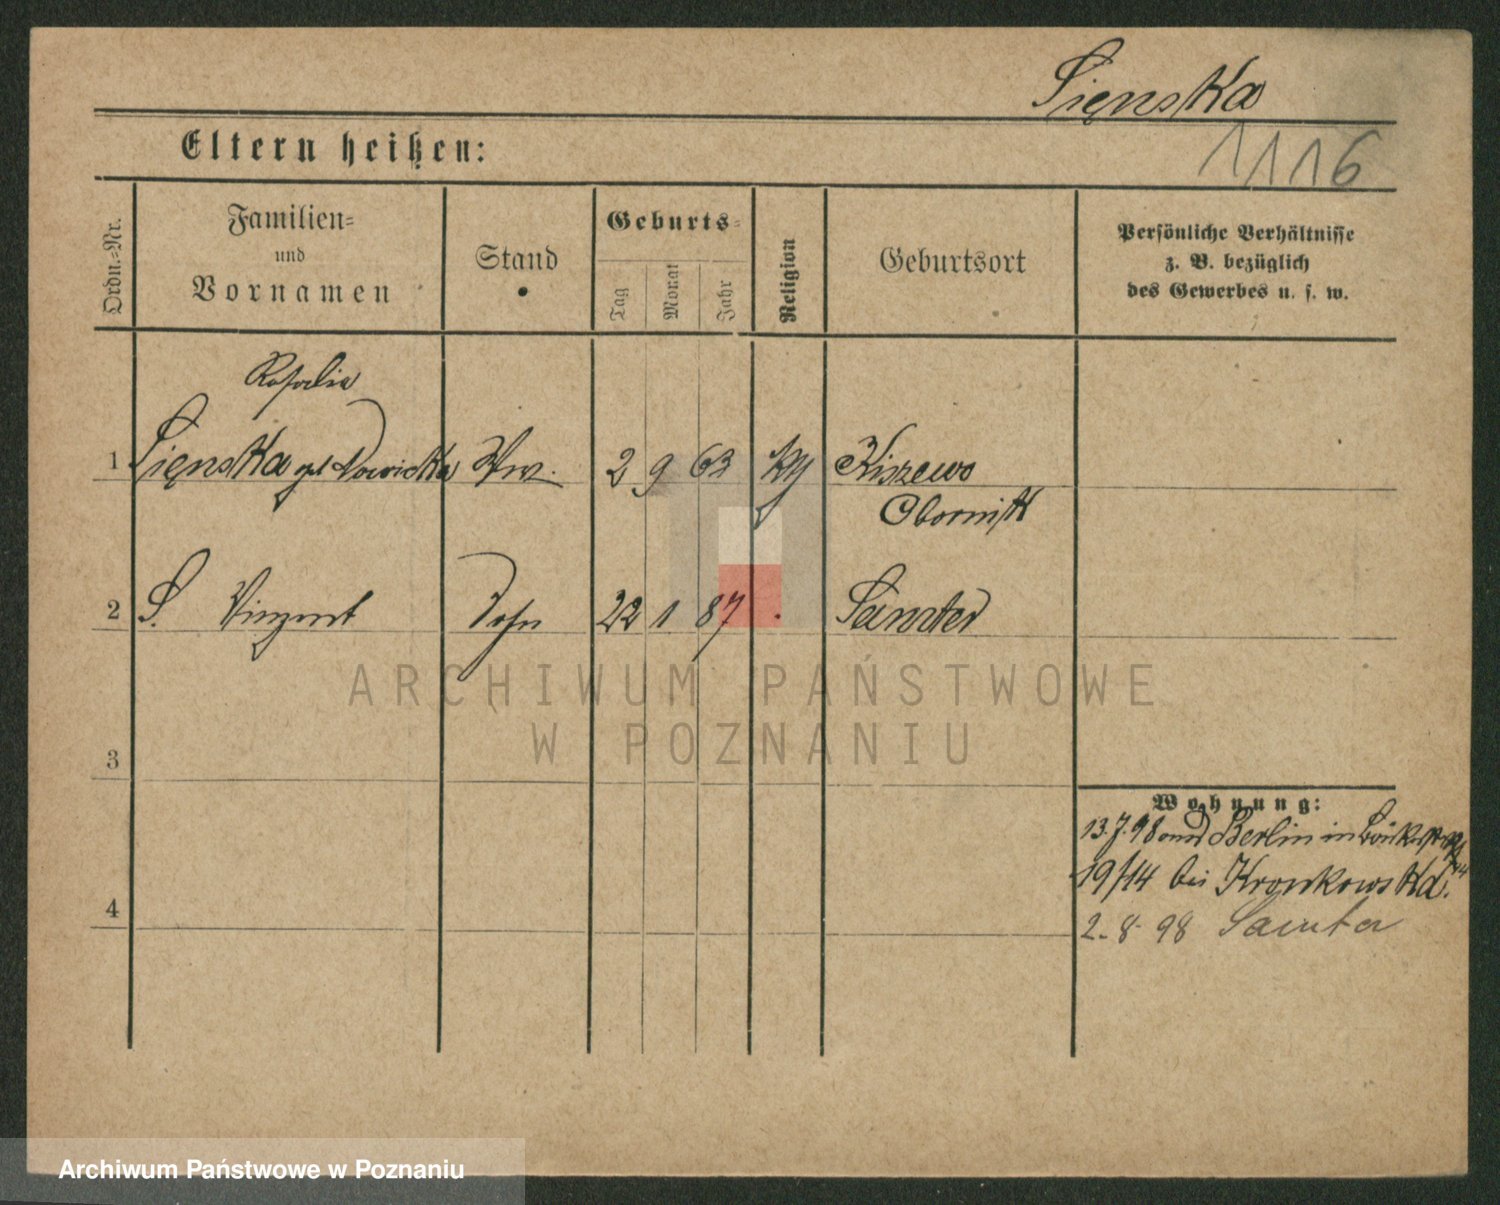 Sięnska
1116
Eltern heißen:
Ordn.-Nr.
Familien=
und
Vornamen
Stand
Geburts=
Tag
Monat
Jahr
Religion
Geburtsort
Persönliche Verhältnisse
z. B. bezüglich
des Gewerbes u. s. w.
Rosalia
1 Sięnska geb Nowicka Ww. 2 9 63 Kiszewo
Obornik
2 S. Vinzent Sohn 22 1 87 Samter
3
4
Wohnung:
13.7.98 Berlin in
19/14 bei
2.8.98 Samter
ARCHIWUM PAŃSTWOWE
W POZNANIU
Archiwum Państwowe w Poznaniu